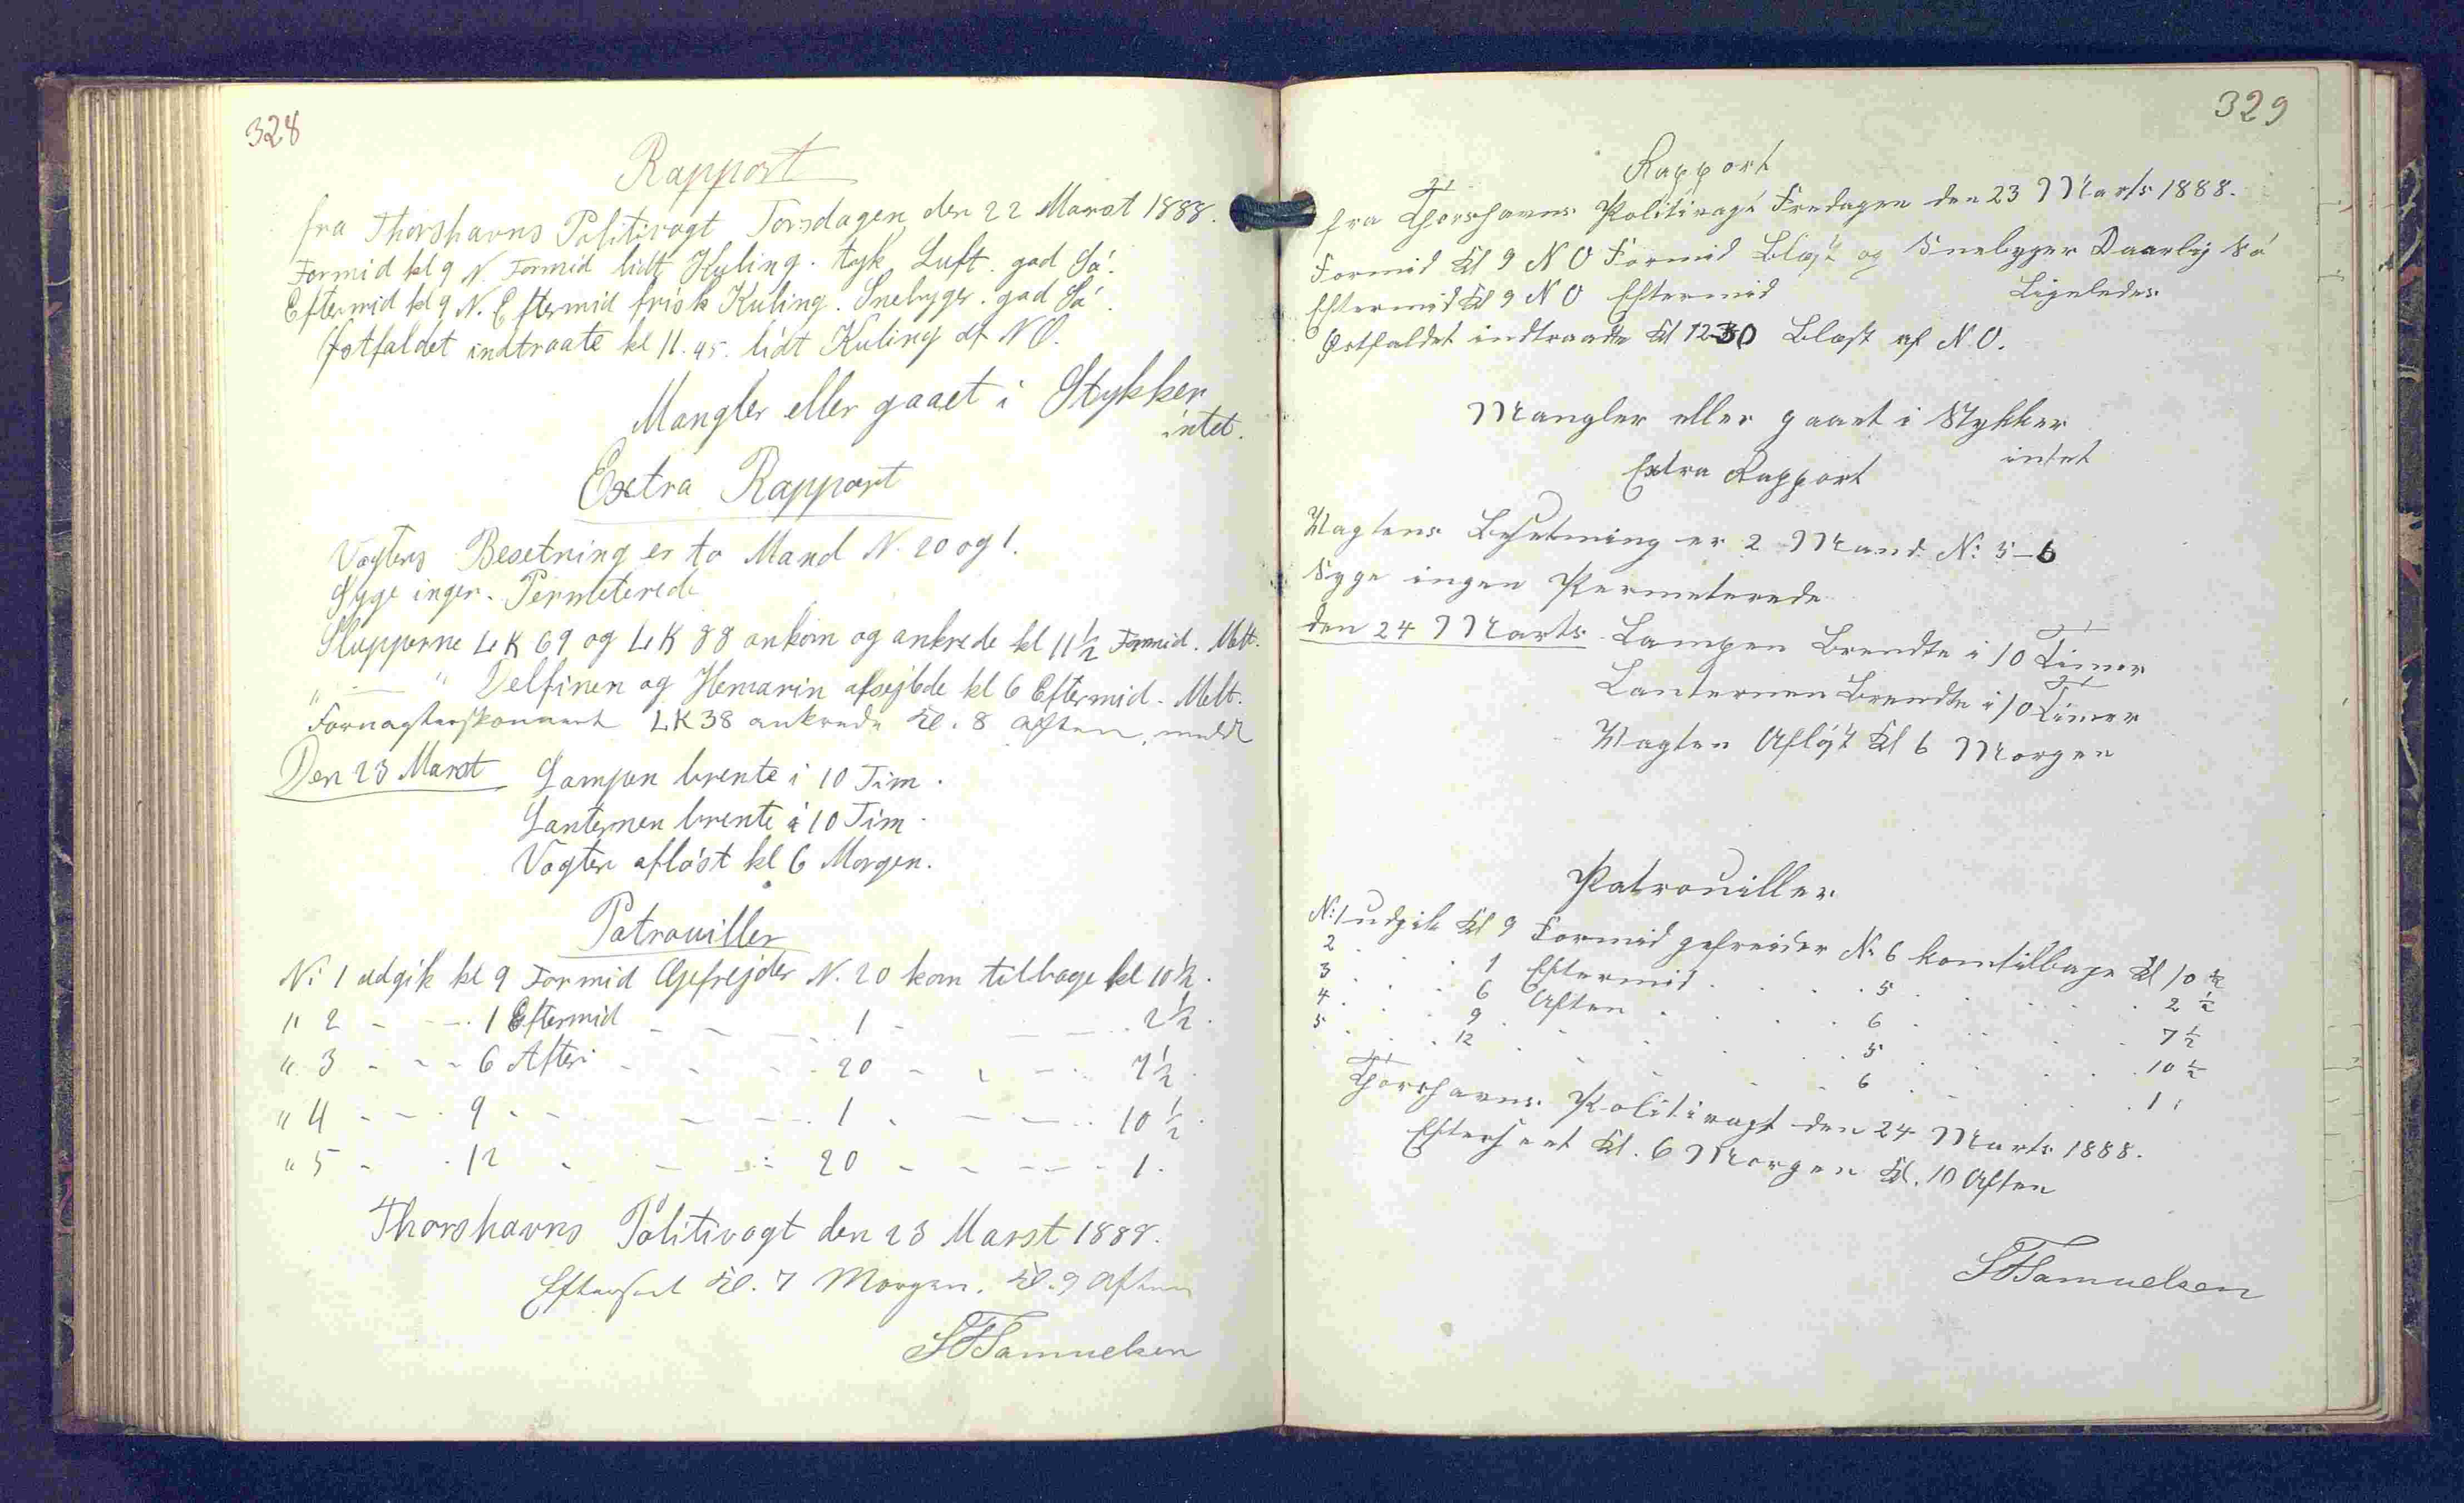 328
Rapport
fra Thorshavns Politivagt Torsdagen den 22 Marst 1888.
Formid kl 9 N. Formid lidt Kuling. tyk Luft. god Sö.
Eftermid kl 9 N. Eftermid frisk Kuling. Snebyger. god Sö.
Østfaldet indtraate kl 11.45. lidt Kuling af NO.
Mangler eller gaaet i Stykker
intet.
Extra Rapport
Vagtens Besetning er to Mand N. 20 og 1.
Syge ingen. Permeterede
Slupperne LK 69 og LK 88 ankom og ankrede kl 11 1/2 Formid. Melt.
" — " Delfinen og Hemarin afsejlede kl 6 Eftermid. Melt.
LK 38 ankrede Kl. 8 Aften, meldt
Den 23 Marst Lampen brente i 10 Tim.
Lanternen brente i 10 Tim.
Vagten aflöst kl 6 Morgen.
Patrouiller
N: 1 udgik kl 9 Formid Gefrejder N. 20 kom tilbage kl 10 1/2.
" 2 - - - 1 Eftermid - - - 1 - - - 2 1/2.
" 3 - - - 6 Aften - - - 20 - - - 7 1/2.
" 4 - - - 9 - - - - - 1 - - - 10 1/2.
" 5 - - 12 - - - - 20 - - - - 1.
Thorshavns Politivagt den 23 Marst 1888.
Efterseet Kl. 7 Morgen. Kl. 9 Aften
Samuelsen
329
Rapport
fra Thorshavns Politivagt Fredagen den 23 Marts 1888.
Formid Kl 9 N O Formid Blæst og Snebyger Daarlig Sö
Eftermid Kl 9 N O Eftermid Ligeledes
Østfaldet indtraadte Kl 12-30 Blæst af N O.
Mangler eller gaaet i Stykker
intet
Extra Rapport
Vagtens Besetning er 2 Mand N: 5-6
Syge ingen Permeterede
den 24 Marts Lampen Brendte i 10 Timer
Lanternen Brendte i 10 Timer
Vagten Aflöst Kl 6 Morgen
Patrouiller
N: 1 udgik Kl 9 Formid gefreider N: 6 kom tilbage Kl 10 1/2
2 . . . 1 Eftermid . . . 5 . . . 2 1/2
3 . . . 6 Aften . . . 6 . . . 7 1/2
4 . . . 9 . . . . 5 . . . 10 1/2
5 . . . 12 . . . . 6 . . . 1
Thorshavns Politivagt den 24 Marts 1888.
Efterseet Kl. 6 Morgen Kl. 10 Aften
Samuelsen